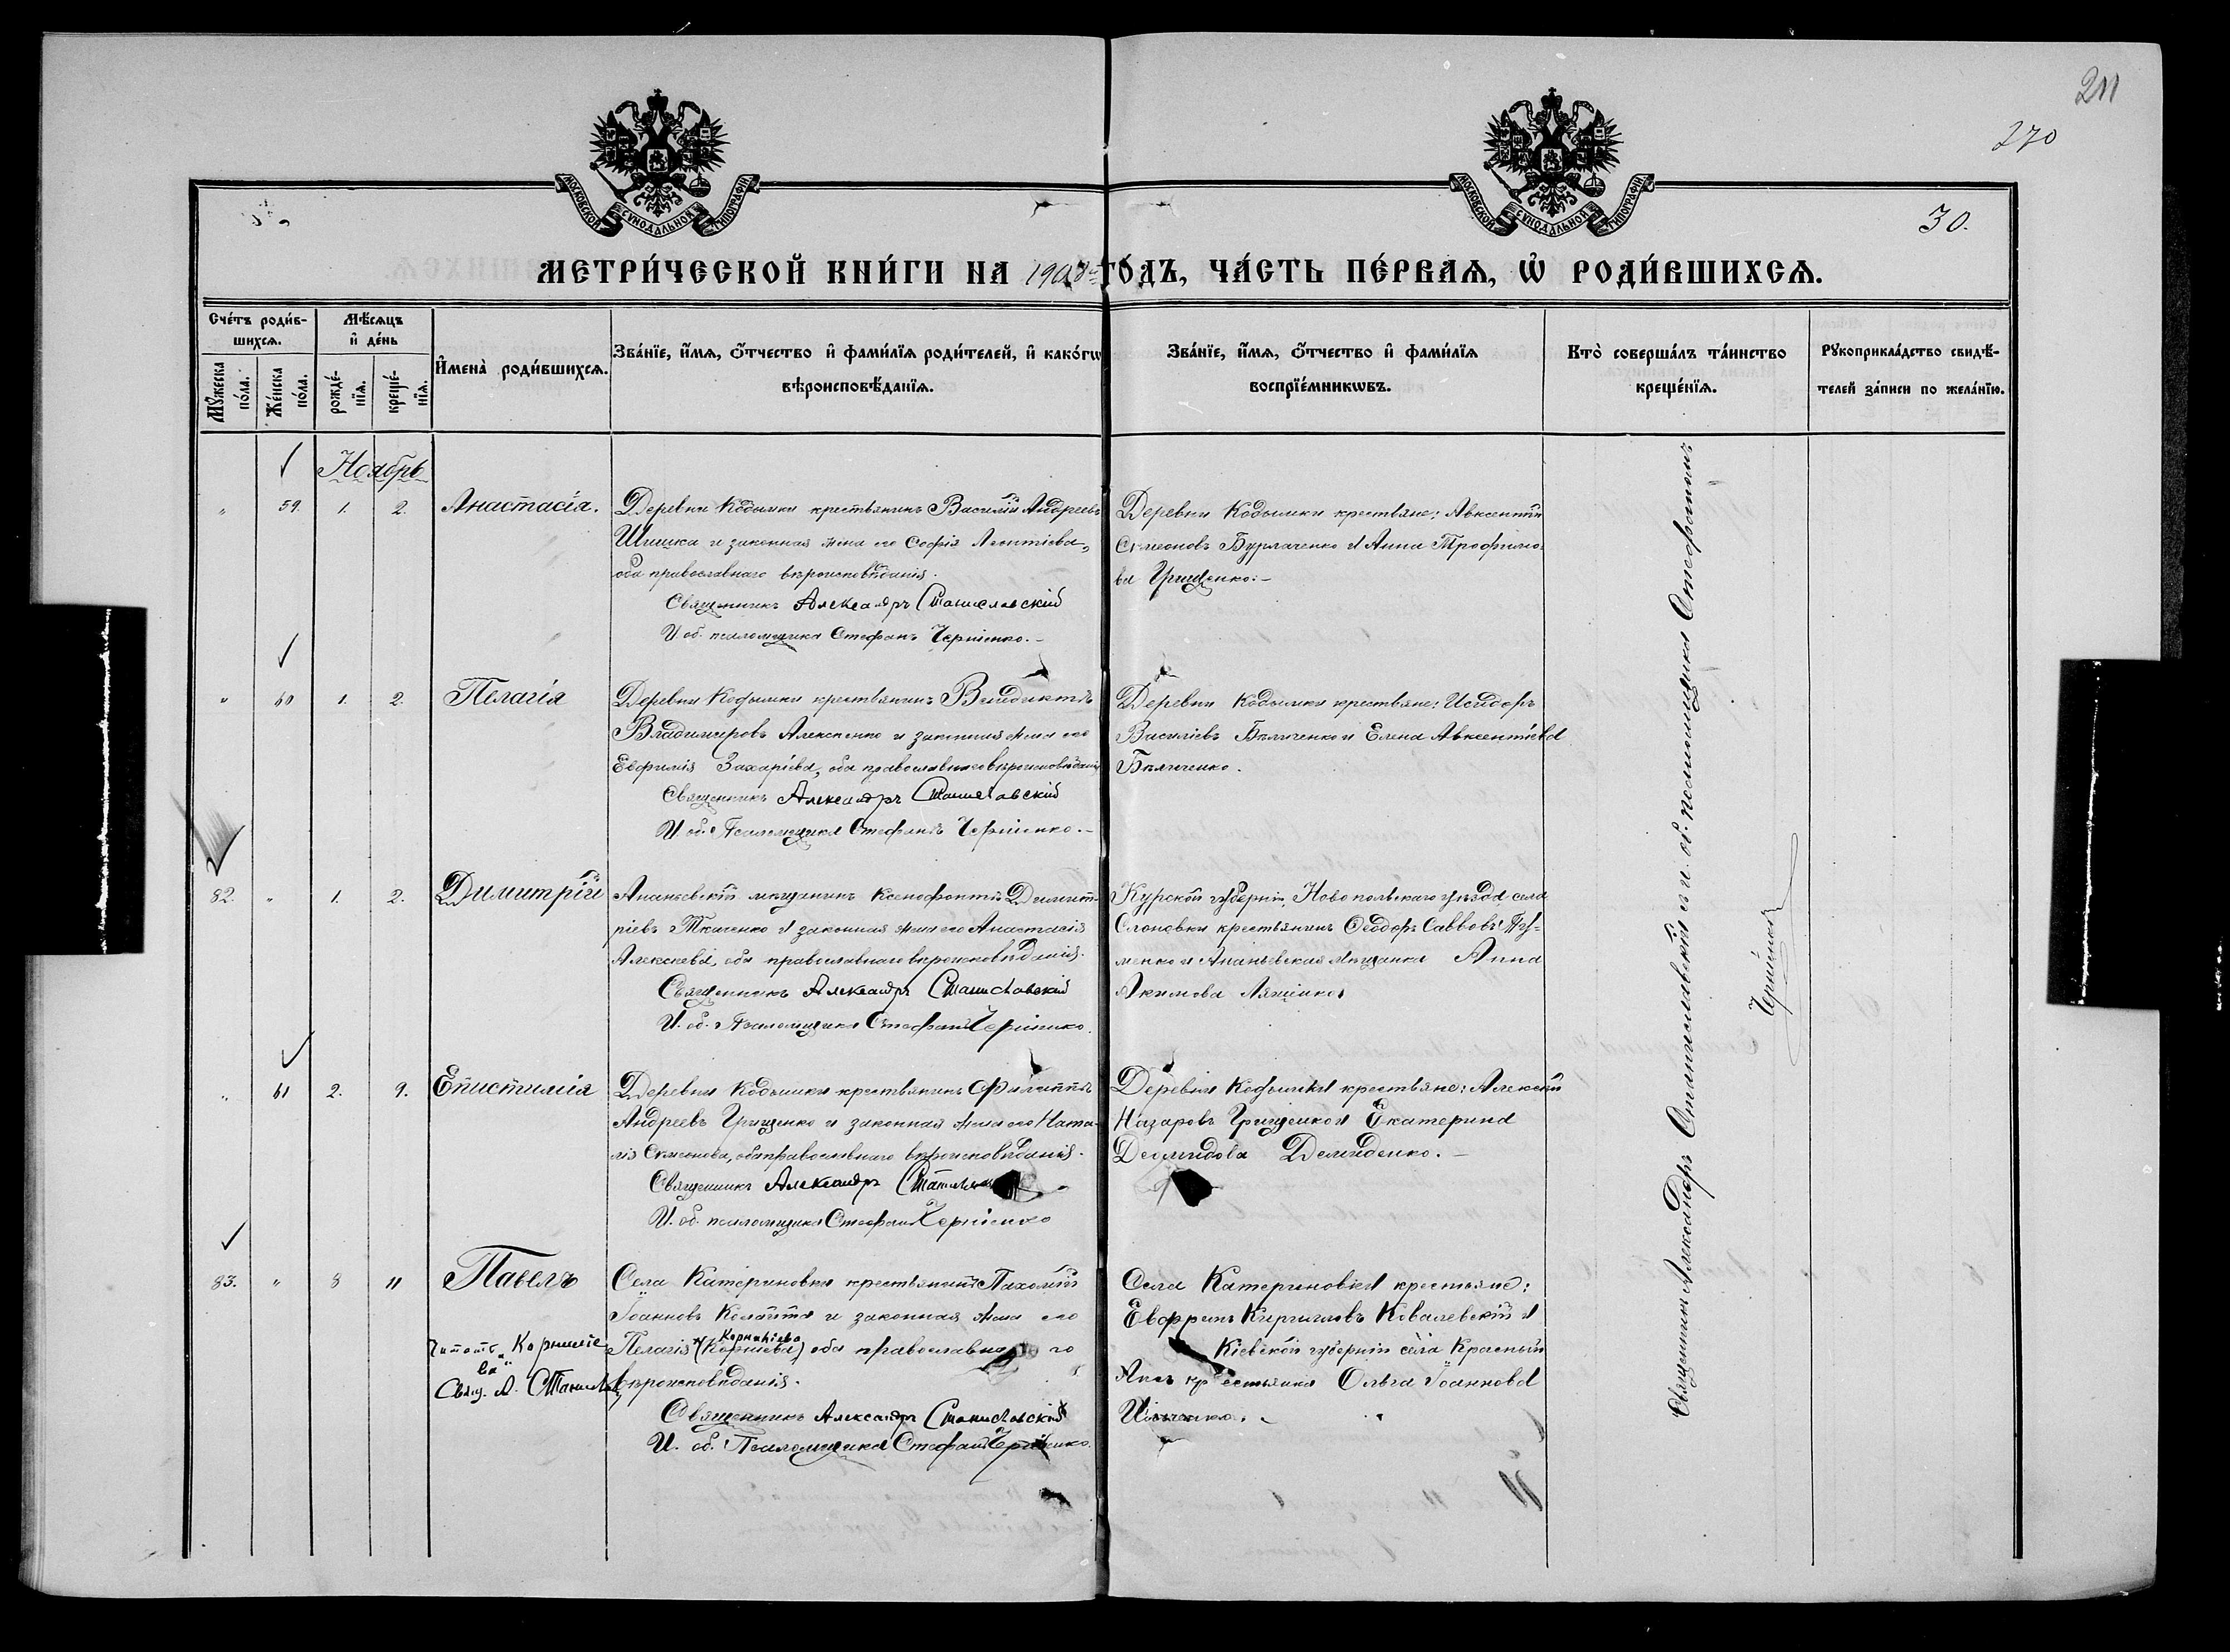 211
270
30.
МОСКОВСКОЙ СУНОДАЛЬНОЙ ТИПОГРАФІИ
МОСКОВСКОЙ СУНОДАЛЬНОЙ ТИПОГРАФІИ
МЕТРИ́ЧЕСКОЙ КНИ́ГИ НА 1908 ГО́ДЪ, ЧА́СТЬ ПЕ́РВАѦ, Ѽ РОДИ́ВШИХСѦ.
Сче́тъ роди́в-
шихсѧ.
Мѣ́сѧцъ
и҆ де́нь
Мꙋ́жеска
по́ла.
Же́нска
по́ла.
рожде́-
нїѧ.
креще́-
нїѧ.
И҆мена̀ роди́вшихсѧ.
Зва́нїе, и҆́мѧ, ѻ҆́тчество и҆ фами́лїѧ роди́телей, и҆ како́гѡ
вѣроисповѣ́данїѧ.
Зва́нїе, и҆́мѧ, ѻ҆́тчество и҆ фами́лїѧ
воспрїе́мникѡвъ.
Кто̀ соверша́лъ та́инство
креще́нїѧ.
Рꙋкоприкла́дство свидѣ́-
телей за́писи по жела́нїю.
Ноябрь
" 59. 1. 2. Анастасія.
Деревни Кодымки крестьянинъ Василій Андреевъ
Шишка и законная жена его Софія Леонтіева,
оба православнаго вѣроисповѣданія.
Священникъ Александръ Станиславскій
И. об. псаломщика Стефанъ Черніенко.
Деревни Кодымки крестьяне: Авксентій
Симеоновъ Бурлаченко и Анна Трофимо-
ва Грищенко.
" 60 1. 2. Пелагія
Деревни Кодымки крестьянинъ Венедиктъ
Владимировъ Алексенко и законная жена его
Евфимія Захаріева, оба православнаго вѣроисповѣданія
Священникъ Александръ Станиславскій
И. об. Псаломщика Стефанъ Черніенко.
Деревни Кодымки крестьяне: Исидоръ
Василіевъ Бѣличенко и Елена Авксентіева
Бѣличенко.
82. " 1. 2. Димитрій
Ананьевскій мѣщанинъ Ксенофонтъ Димит-
ріевъ Ткаченко и законная жена его Анастасія
Алексѣева, оба православнаго вѣроисповѣданія.
Священникъ Александръ Станиславскій
И. об. Псаломщика Стефанъ Черніенко.
Курской губерніи, Новопольскаго уѣзда, села
Слоновки крестьянинъ Ѳеодоръ Саввовъ
и Ананьевская мѣщанка Анна
Акимова
" 61 2. 9. Епистимія
Деревни Кодымки крестьянинъ Филиппъ
Андреевъ Грищенко и законная жена его Ната-
лія Симеонова, оба православнаго вѣроисповѣданія.
Священникъ Александръ
И. об. псаломщика Стефанъ Черніенко
Деревни Кодымки крестьяне: Алексѣй
Назаровъ Грищенко и Екатерина
Деомидова Демиденко.
83. " 8 11 Павелъ
Читать „Корниліе
ва"
Свящ. А. Станиславскій
Села Катериновки крестьянинъ Пахомій
Іоанновъ и законная жена его
Корниліева
Пелагія (Корніева) оба православнаго
вѣроисповѣданія.
Священникъ Александръ Станиславскій
И. об. Псаломщика Стефанъ Черніенко.
Села Катериновки крестьяне:
Кирилловъ Ковалевскій и
Кіевской губерніи села Красный
крестьянка Ольга Іоаннова
Священникъ Александръ Станиславскій и и. об. псаломщика Стефанъ
Черніенко